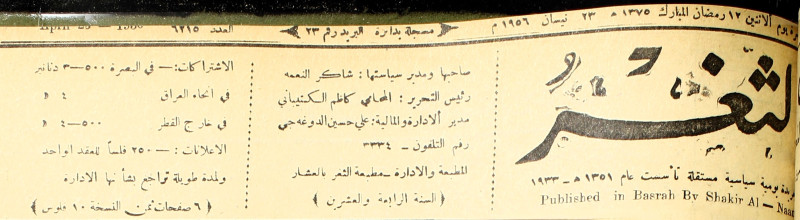 يوم الاثنين ١٢ رمضان المبارك ١٣٧٥ هـ ٢٣ نيسان ١٩٥٦ م
مسجلة بدائرة البريد رقم ٢٣
العدد ٦٢١٥
الثغر
جريدة يومية سياسية مستقلة تأسست عام ١٣٥١ هـ - ١٩٣٣
Published in Basrah By Shakir Al - Naa
صاحبها ومدير سياستها : شاكر النعمه
رئيس التحرير : المحامي كاظم الكتيباني
مدير الادارة والمالية : علي حسين الدوغه جي
رقم التلفون - ٣٣٣٤
المطبعة والادارة - مطبعة الثغر بالعشار
( السنة الرابعة والعشرين )
الاشتراكات :— في البصرة ٥٠٠-٣ دنانير
في انحاء العراق ٤ »
في خارج القطر ٥٠٠-٤ »
الاعلانات :— ٢٥٠ فلساً للعقد الواحد
ولمدة طويلة تراجع بشأنها الادارة
( ٦ صفحات ثمن النسخة ١٠ فلوس )